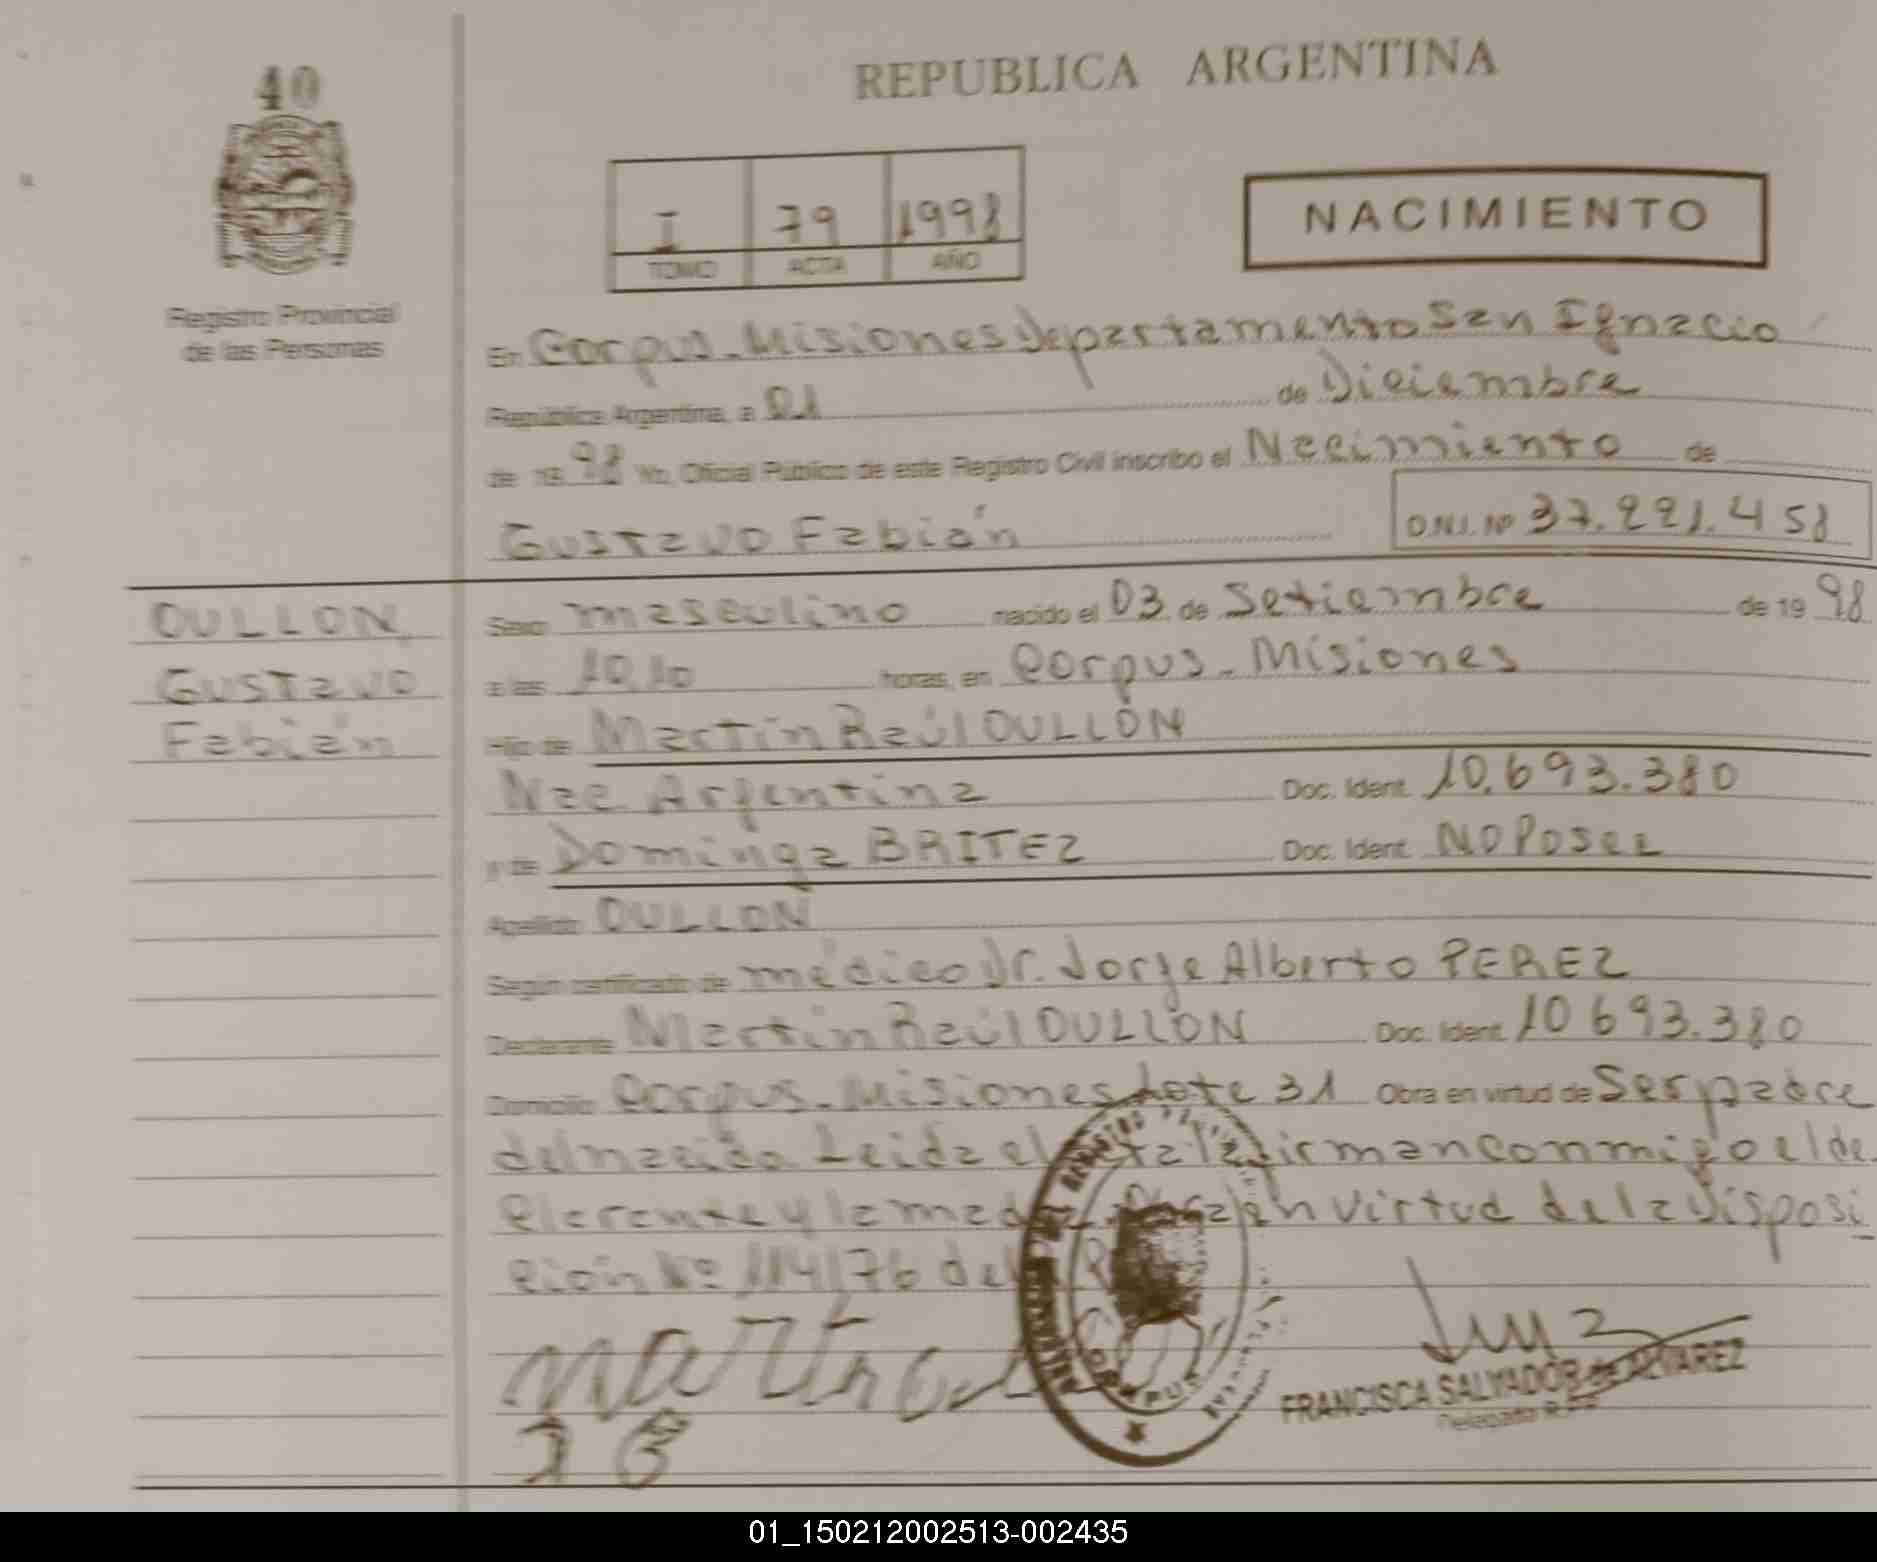 40
REPUBLICA ARGENTINA
I 79 1998
TOMO ACTA AÑO
NACIMIENTO
Registro Provincial
de las Personas
En Corpus-Misiones Departamento San Ignacio
República Argentina, a 01 de Diciembre
de 19 98 Yo, Oficial Público de este Registro Civil inscribo el Nacimiento de
Gustavo Fabián D.N.I. Nº 37.221.458
OULLON
Gustavo
Fabián
Sexo masculino nacido el 03 de Setiembre de 19 98
a las 10,10 horas, en Corpus-Misiones
Hijo de Martín Raúl OULLÓN
Nac. Argentina Doc. Ident. 10.693.380
y de Dominga BRITEZ Doc. Ident. NO Posee
Apellido OULLON
Según certificado de médico Dr. Jorge Alberto PEREZ
Declarante Martín Raúl OULLÓN Doc. Ident. 10693.380
Domicilio Corpus-Misiones Lote 31 Obra en virtud de Ser padre
del nacido Leida el acta la firman conmigo el de
clarante y la madre en virtud de la Disposi
ción Nº 114/76 del
CORPUS
FRANCISCA SALVADOR de ALVAREZ
Delegada R.P.P
01_150212002513-002435